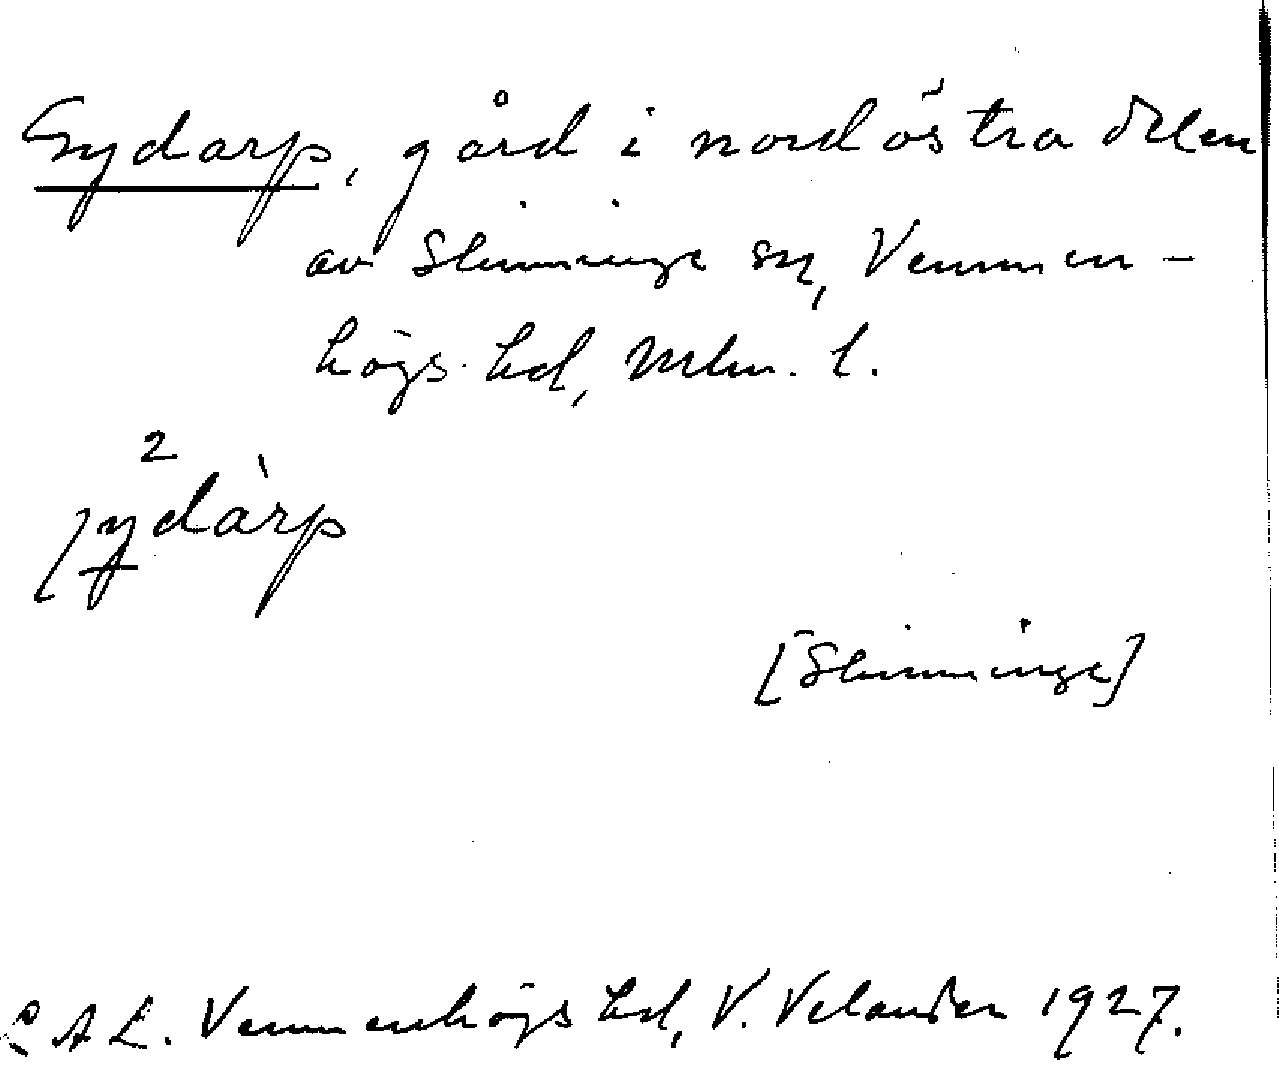 Gydarp, gård i nordöstra delen
av Slimminge sn, Vemmen-
högs hd, Mlm. l.
2
jydàrp
[Slimminge]
LAL. Vemmenhögs hd, V. Velander 1927.